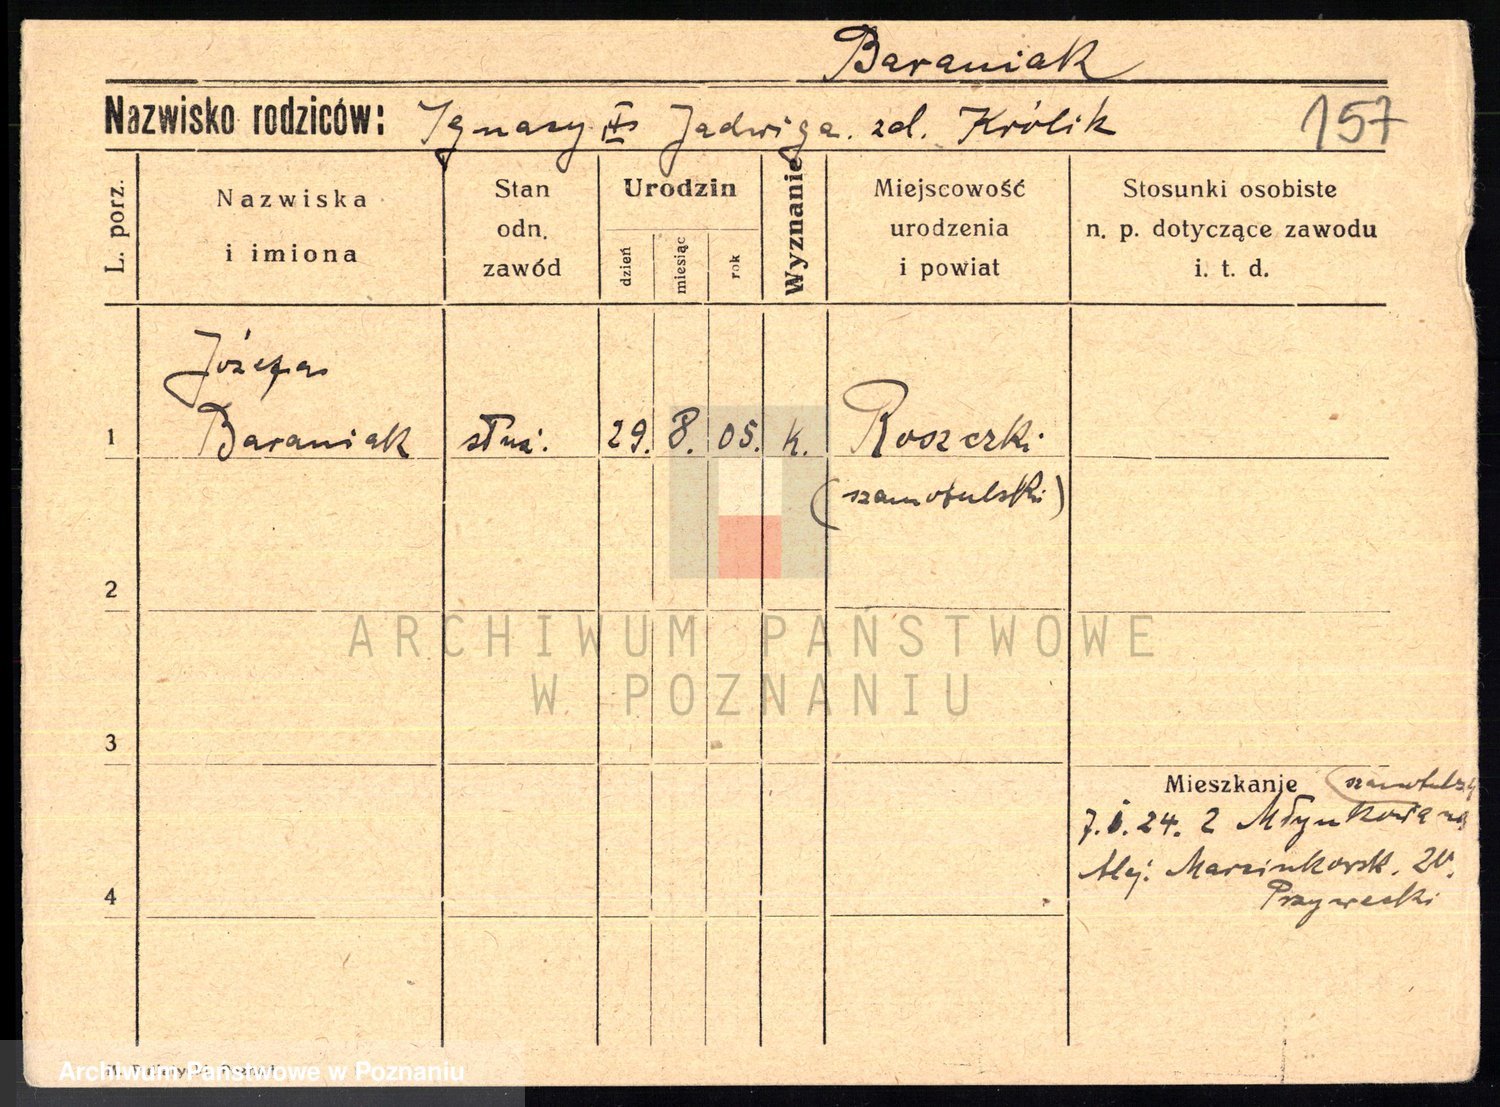 Baraniak
Nazwisko rodziców: Ignacy i Jadwiga. zd. Królik
157
L. porz.
Nazwiska
i imiona
Stan
odn.
zawód
Urodzin
dzień
miesiąc
rok
Wyznanie
Miejscowość
urodzenia
i powiat
Stosunki osobiste
n. p. dotyczące zawodu
i. t. d.
Józefa
1 Baraniak służ. 29. 8. 05. k. Roszczki
(szamotulski)
2
ARCHIWUM PAŃSTWOWE
W POZNANIU
3
Mieszkanie (szamotulsky
7.I.24. z Młynkowa
Alej. Marcinkowsk. 20.
Przywecki
4
Archiwum Państwowe w Poznaniu